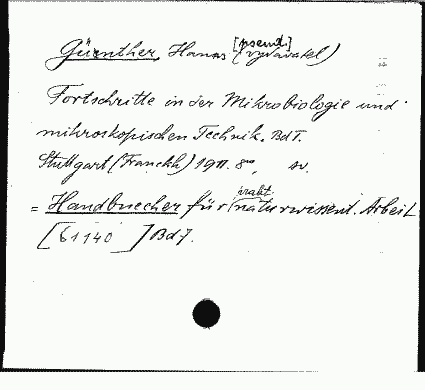 Günther, Hanns [pseud.] (vydavatel)
Fortschritte in der Mikrobiologie und
mikroskopischen Technik. Bd I.
Stuttgart (Franckh) 1911. 8°, sv.
= Handbuecher für prakt. naturwissensch. Arbeit
[61140 ] Bd 7.